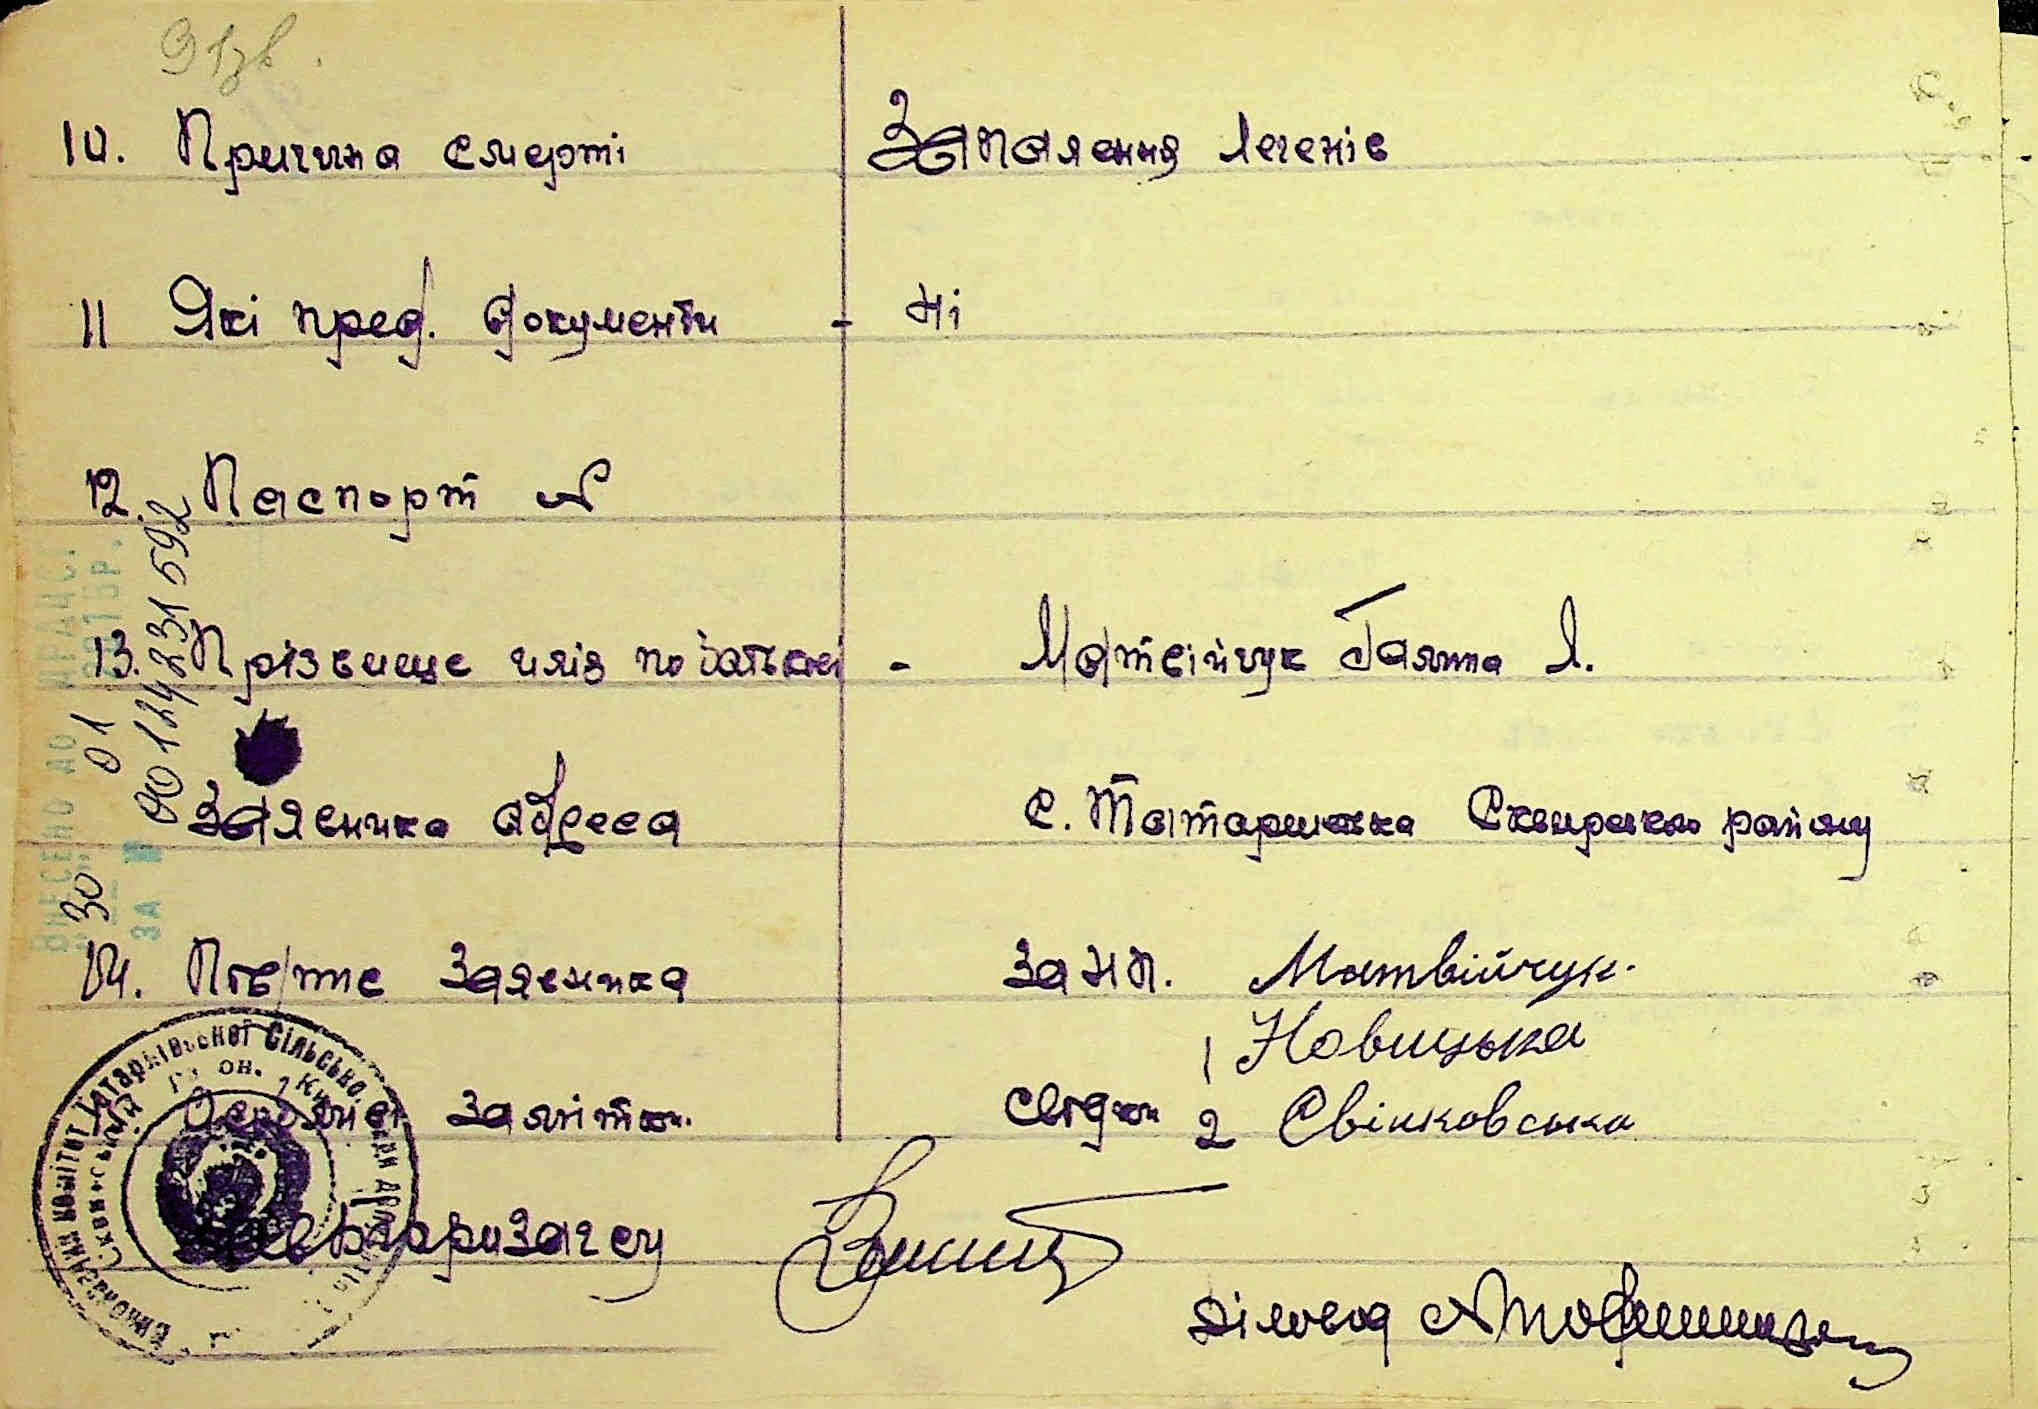 10. Причина смерті Запалення легенів
11 Які пред. документи - Ні
12. Паспорт №
13. Прізвище имія по батькові - Матвійчук Галина Я.
Заявника адреса с. Татаринівка Сквирського району
14. Підпис Заявника за нп. Матвійчук.
1 Новицька
Особливі замітки. свідки 2 Свінковська
Зав. бюро Загсу
Діловод
ВНЕСЕНО ДО ДРАЦС.
30 01 2015р.
ЗА № 00124231592
Виконавчий комітет Татаринівської Сільської Ради депутатів